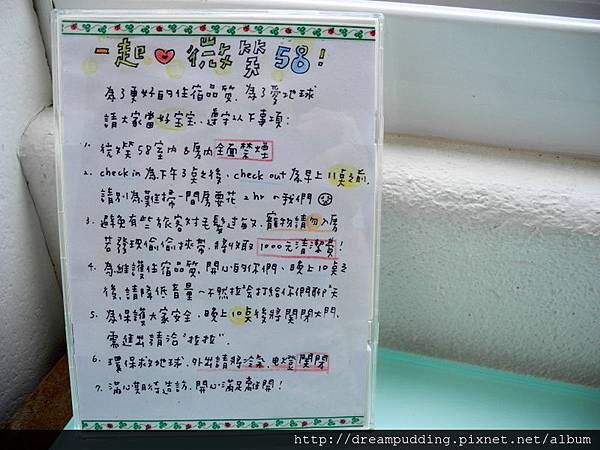 一起♥微笑58!
為了更好的住宿品質，為了愛地球
請大家當好宝宝，遵守以下事項：
1. 微笑58室內&房內全面禁煙
2. check in 為下午3點之後、check out 為早上11點之前，
請別為難打掃一間房要花2hr的我們
3. 避免有些旅客對毛髮過敏，寵物請勿入房
若發現偷偷挾帶，將收取1000元清潔費!
4. 為維護住宿品質，開心的你們、晚上10點之
後，請降低音量~不然拉拉會打給你們聊聊天
5. 為保護大家安全，晚上10點後將關閉大門，
需進出請洽"拉拉"．
6. 環保救地球，外出請將冷氣、電燈關閉
7. 滿心期待造訪，開心滿足離開!
http://dreampudding.pixnet.net/album